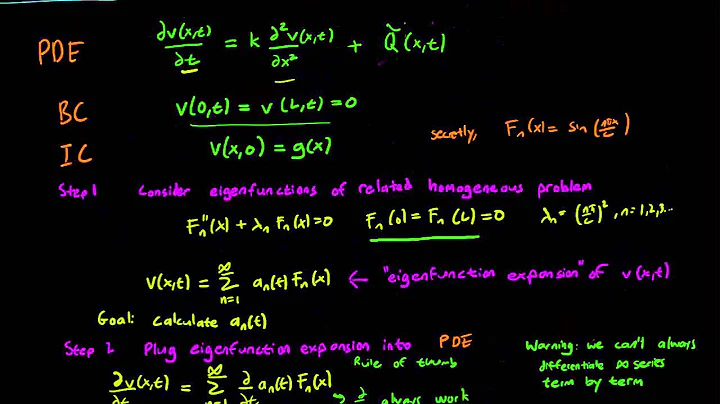 PDE ∂v(x,t)/∂t = k ∂²v(x,t)/∂x² + Q̃(x,t)
BC v(0,t) = v(L,t) = 0
IC v(x,0) = g(x)
secretly, Fn(x) = sin(nπx/L)
Step 1 Consider eigenfunctions of related homogeneous problem
Fn''(x) + λn Fn(x) = 0 Fn(0) = Fn(L) = 0 λn = (nπ/L)², n = 1,2,3...
v(x,t) = ∞Σn=1 an(t) Fn(x) ← "eigenfunction expansion" of v(x,t)
Goal: calculate an(t)
Step 2 Plug eigenfunction expansion into PDE
Warning: we can't always
differentiate ∞ series
term by term
Rule of thumb
∂v(x,t)/∂t = ∞Σn=1 ∂/∂t an(t) Fn(x)
→ ∂ always work